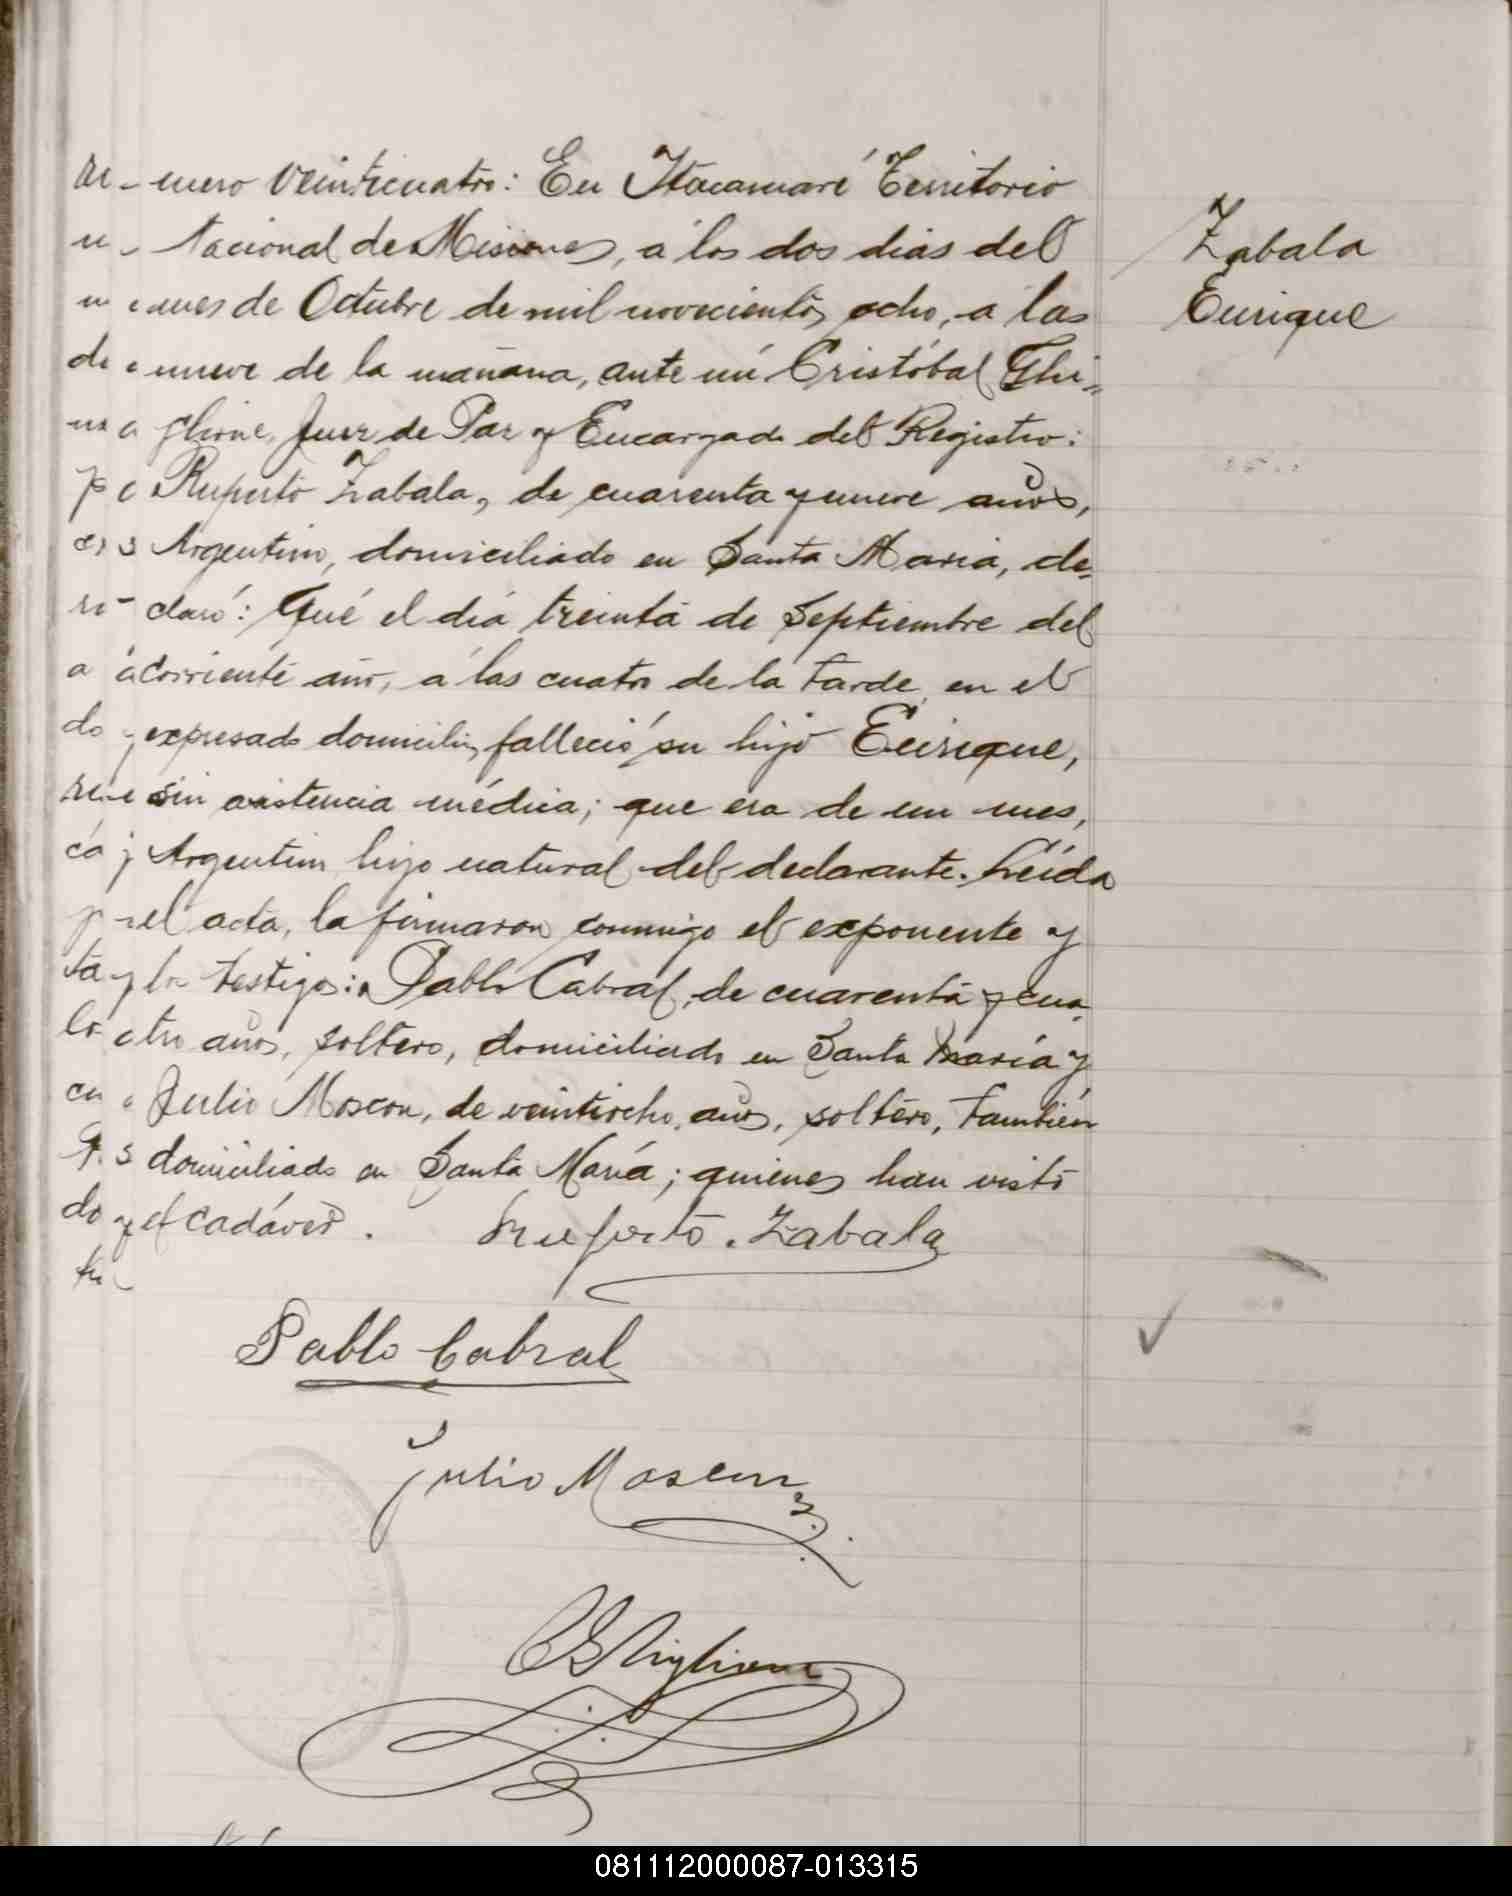 mero veinticuatro: En Itacaruaré Territorio
Nacional de Misiones, á los dos dias del
mes de Octubre de mil novecientos ocho, a las
nueve de la mañana, ante mi Cristóbal Ghi=
glione, Juez de Paz y Encargado del Registro:
Ruperto Zabala, de cuarenta y nueve años,
Argentino, domiciliado en Santa Maria, de=
claró: Qué el día treinta de Septiembre del
corriente año, á las cuatro de la tarde, en el
expresado domicilio, falleció su hijo Enrique,
sin asistencia médica; que era de un mes,
Argentino hijo natural del declarante. Leída
el acta, la firmaron conmigo el exponente y
los testigos: Pablo Cabral, de cuarenta y cua
tro años, soltero, domiciliado en Santa María y
Julio Moscon, de veintiocho, años, soltero, también
domiciliado en Santa María; quienes han visto
el cadáver. Ruperto Zabala
Pablo Cabral
Julio Moscon
CGhiglione
Zabala
Enrique
081112000087-013315